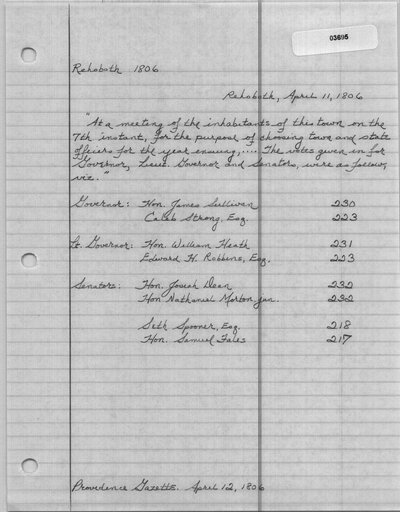 03695
Rehoboth 1806
Rehoboth, April 11, 1806
"At a meeting of the inhabitants of this town on the
7th instant, for the purpose of choosing town and state
officers for the year ensuing,.... The votes given in for
Governor, Lieut. Governor and Senators, were as follow,
viz."
Governor: Hon. James Sullivan 230
Caleb Strong, Esq. 223
Lt. Governor: Hon. William Heath 231
Edward H. Robbins, Esq. 223
Senators: Hon. Josiah Dean 232
Hon Nathaniel Morton jun. 232
Seth Spooner, Esq. 218
Hon. Samuel Fales 217
Providence Gazette. April 12, 1806